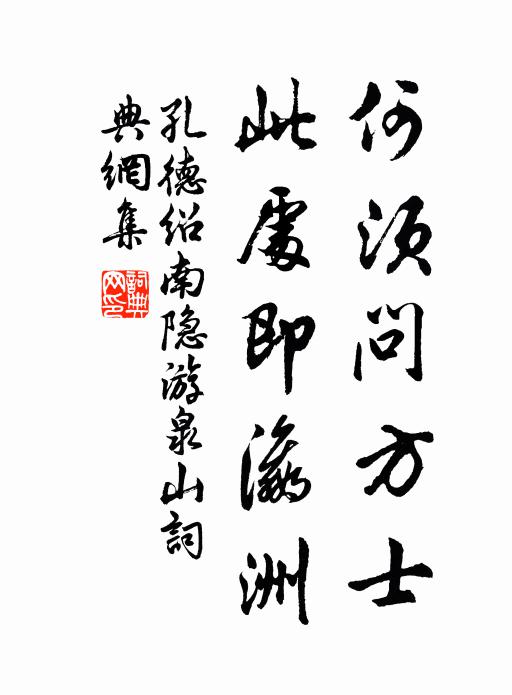 何須問方士
此處即瀛洲
孔德绍南隐游泉山詞
典網集
詞典
网印